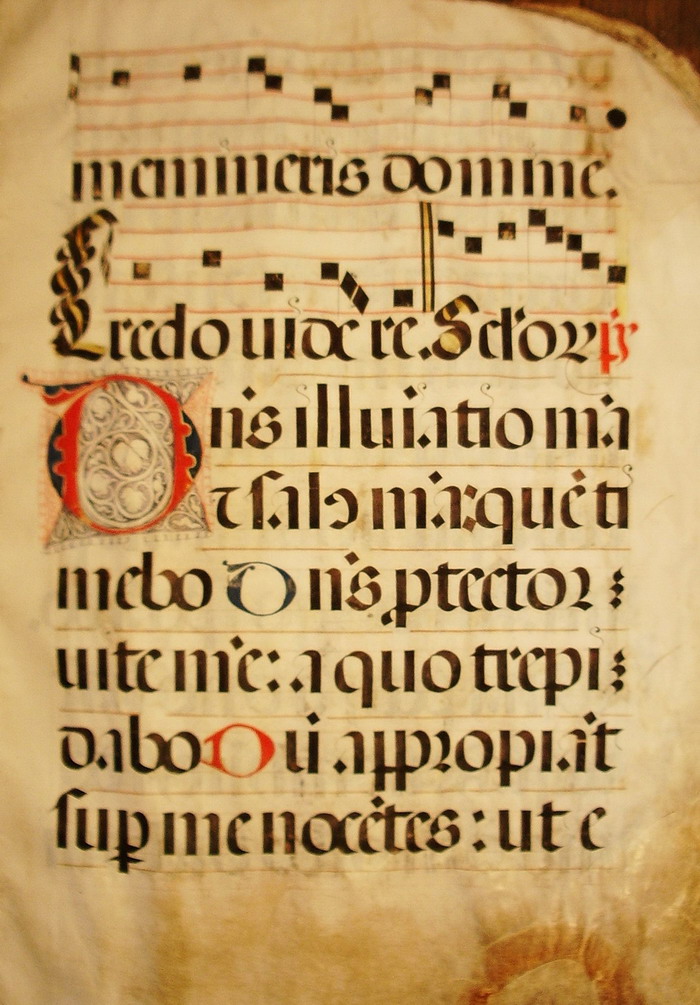 memineris domine.
Credo uidere. Seculor ps
Dn's illuiatio m'a
et sal' m'a: quē ti
mebo Dn's ptector
uite me': a quo trepi
dabo Dū appropiāt
sup me nocētes: ut e